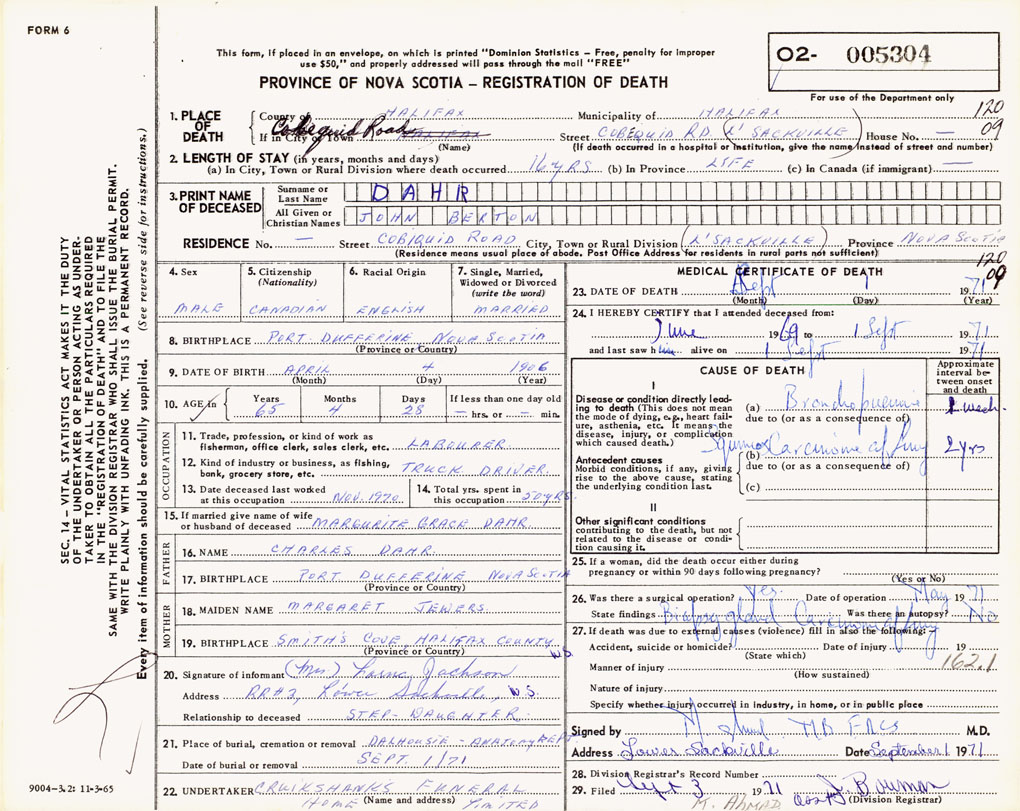 FORM 6
This form, if placed in an envelope, on which is printed "Dominion Statistics – Free, penalty for improper
use $50," and properly addressed will pass through the mail "FREE"
PROVINCE OF NOVA SCOTIA – REGISTRATION OF DEATH
O2- 005304
For use of the Department only
120
09
1. PLACE OF DEATH
County of HALIFAX Municipality of HALIFAX
If in City or Town HALIFAX Cobequid Road Street COBEQUID RD (L' SACKVILLE) House No. —
(Name) (If death occurred in a hospital or institution, give the name instead of street and number)
2. LENGTH OF STAY (in years, months and days)
(a) In City, Town or Rural Division where death occurred 16 YRS (b) In Province LIFE (c) In Canada (if immigrant) —
3. PRINT NAME OF DECEASED
Surname or Last Name DAHR
All Given or Christian Names JOHN BERTON
RESIDENCE No. — Street COBIQUID ROAD City, Town or Rural Division (L'SACKVILLE) Province NOVA SCOTIA
(Residence means usual place of abode. Post Office Address for residents in rural parts not sufficient)
120
09
4. Sex
MALE
5. Citizenship (Nationality)
CANADIAN
6. Racial Origin
ENGLISH
7. Single, Married, Widowed or Divorced (write the word)
MARRIED
8. BIRTHPLACE PORT DUFFERINE NOVA SCOTIA
(Province or Country)
9. DATE OF BIRTH APRIL 4 1906
(Month) (Day) (Year)
10. AGE in Years 65 Months 4 Days 28 If less than one day old — hrs. or — min.
OCCUPATION
11. Trade, profession, or kind of work as
fisherman, office clerk, sales clerk, etc. LABOURER.
12. Kind of industry or business, as fishing,
bank, grocery store, etc. TRUCK DRIVER.
13. Date deceased last worked
at this occupation NOV. 1970
14. Total yrs. spent in
this occupation 20 YRS.
15. If married give name of wife
or husband of deceased MARGURITE GRACE DAHR
FATHER
16. NAME CHARLES DAHR.
17. BIRTHPLACE PORT DUFFERINE NOVA SCOTIA
(Province or Country)
MOTHER
18. MAIDEN NAME MARGARET JEWERS.
19. BIRTHPLACE SMITH'S COVE, HALIFAX COUNTY N.S.
(Province or Country)
20. Signature of informant (Mrs) Jackson
Address RR#2, Lower Sackville, N.S.
Relationship to deceased STEP-DAUGHTER
21. Place of burial, cremation or removal DALHOUSIE - ANATOMY DEPT
Date of burial or removal SEPT. 1/71
22. UNDERTAKER CRUIKSHANKS FUNERAL
HOME LIMITED
(Name and address)
MEDICAL CERTIFICATE OF DEATH
23. DATE OF DEATH Sept 1 1971
(Month) (Day) (Year)
24. I HEREBY CERTIFY that I attended deceased from:
June 1969 to 1 Sept 1971
and last saw him alive on 1 Sept 1971
CAUSE OF DEATH
Approximate interval between onset and death
I
Disease or condition directly leading to death (This does not mean the mode of dying, e.g., heart failure, asthenia, etc. It means the disease, injury, or complication which caused death.)
(a) Bronchopneumonia 1 week
due to (or as a consequence of)
Antecedent causes
Morbid conditions, if any, giving rise to the above cause, stating the underlying condition last.
(b) Squamous Carcinoma of lung 2 yrs
due to (or as a consequence of)
(c)
II
Other significant conditions contributing to the death, but not related to the disease or condition causing it.
25. If a woman, did the death occur either during
pregnancy or within 90 days following pregnancy?
(Yes or No)
26. Was there a surgical operation? Yes. Date of operation May 1971
State findings Biopsy gland Carcinoma of lung Was there an autopsy? No
27. If death was due to external causes (violence) fill in also the following:
Accident, suicide or homicide? Date of injury 19
(State which)
162.1
Manner of injury
(How sustained)
Nature of injury
Specify whether injury occurred in industry, in home, or in public place
Signed by MB FRCS M.D.
Address Lower Sackville Date September 1 1971
28. Division Registrar's Record Number
29. Filed Sept 3 1971 J. Bowman
M. AHMAD (Division Registrar)
SEC. 14 – VITAL STATISTICS ACT MAKES IT THE DUTY
OF THE UNDERTAKER OR PERSON ACTING AS UNDER-
TAKER TO OBTAIN ALL THE PARTICULARS REQUIRED
IN THE "REGISTRATION OF DEATH" AND TO FILE THE
SAME WITH THE DIVISION REGISTRAR WHO SHALL ISSUE THE BURIAL PERMIT.
WRITE PLAINLY WITH UNFADING INK. THIS IS A PERMANENT RECORD.
Every item of information should be carefully supplied. (See reverse side for instructions.)
9004-3.2: 11-3-65